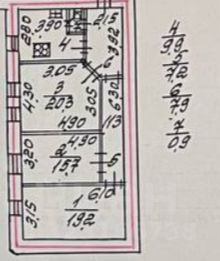 2,15
3,90
2,80
4
3,92
6
3.05
3
20,3
4,30
3,05
6,30
4,90
1,13
4,90
2
15,7
3,20
5
6,10
1
19,2
3,15
4
9,9
5
7,2
6
7,9
7
0,9